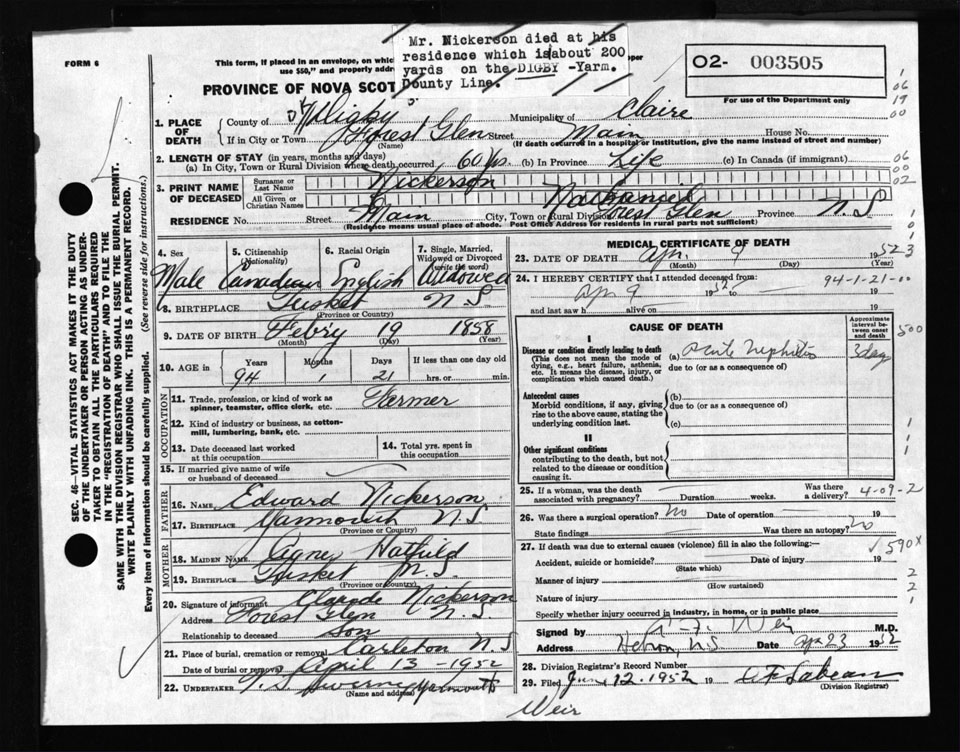 Mr. Nickerson died at his
residence which is about 200
yards on the DIGBY -Yarm.
County Line.
FORM 6
This form, if placed in an envelope, on which
use $50," and properly addr
PROVINCE OF NOVA SCOT
O2- 003505
For use of the Department only
06
17
00
1. PLACE OF DEATH
County of Digby Municipality of Claire
If in City or Town Forest Glen Street Main House No.
(Name) (If death occurred in a hospital or institution, give the name instead of street and number)
2. LENGTH OF STAY (in years, months and days)
(a) In City, Town or Rural Division where death occurred 60 Yrs. (b) In Province Life (c) In Canada (if immigrant)
06
00
02
3. PRINT NAME OF DECEASED
Surname or Last Name Nickerson
All Given or Christian Names Nathaniel
RESIDENCE No. Street Main City, Town or Rural Division Forest Glen Province N.S
(Residence means usual place of abode. Post Office Address for residents in rural parts not sufficient)
4. Sex 5. Citizenship (Nationality) 6. Racial Origin 7. Single, Married, Widowed or Divorced (write the word)
Male Canadian English Widowed
8. BIRTHPLACE Tusket N.S
(Province or Country)
9. DATE OF BIRTH Feb'ry 19 1858
(Month) (Day) (Year)
10. AGE in Years Months Days If less than one day old
94 1 21 hrs. or min.
OCCUPATION
11. Trade, profession, or kind of work as spinner, teamster, office clerk, etc. Farmer
12. Kind of industry or business, as cotton-mill, lumbering, bank, etc.
13. Date deceased last worked at this occupation
14. Total yrs. spent in this occupation
15. If married give name of wife or husband of deceased
FATHER
16. NAME Edward Nickerson
17. BIRTHPLACE Yarmouth N.S.
(Province or Country)
MOTHER
18. MAIDEN NAME Agnes Hatfield
19. BIRTHPLACE Tusket N.S.
(Province or Country)
20. Signature of informant Claude Nickerson
Address Forest Glen N.S.
Relationship to deceased Son
21. Place of burial, cremation or removal Carleton N.S
Date of burial or removal April 13 - 1952
22. UNDERTAKER Yarmouth
(Name and address)
MEDICAL CERTIFICATE OF DEATH
23. DATE OF DEATH Apr. 9 1952
(Month) (Day) (Year)
24. I HEREBY CERTIFY that I attended deceased from:
94-1-21-00
Apr 9 1952 to 19
and last saw h alive on 19
CAUSE OF DEATH
Approximate interval between onset and death
I
Disease or condition directly leading to death
(This does not mean the mode of dying, e.g., heart failure, asthenia, etc. It means the disease, injury, or complication which caused death.)
(a) Acute Nephritis 3 days
due to (or as a consequence of)
Antecedent causes
Morbid conditions, if any, giving rise to the above cause, stating the underlying condition last.
(b)
due to (or as a consequence of)
(c)
II
Other significant conditions
contributing to the death, but not related to the disease or condition causing it.
25. If a woman, was the death associated with pregnancy? Duration weeks. Was there a delivery?
4-09-2
26. Was there a surgical operation? No Date of operation 19
State findings Was there an autopsy? No
27. If death was due to external causes (violence) fill in also the following:—
590X
Accident, suicide or homicide? Date of injury 19
(State which)
Manner of injury
(How sustained)
Nature of injury
Specify whether injury occurred in industry, in home, or in public place
Signed by A F Weir M.D.
Address Hebron, N.S Date Apr 23 1952
28. Division Registrar's Record Number
29. Filed June 12. 1952 19
(Division Registrar)
Weir
SEC. 46—VITAL STATISTICS ACT MAKES IT THE DUTY
OF THE UNDERTAKER OR PERSON ACTING AS UNDER-
TAKER TO OBTAIN ALL THE PARTICULARS REQUIRED
IN THE "REGISTRATION OF DEATH" AND TO FILE THE
SAME WITH THE DIVISION REGISTRAR WHO SHALL ISSUE THE BURIAL PERMIT.
WRITE PLAINLY WITH UNFADING INK. THIS IS A PERMANENT RECORD.
Every item of information should be carefully supplied. (See reverse side for instructions.)